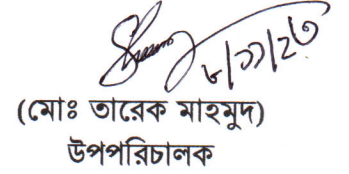 ৮/১১/২৩
(মোঃ তারেক মাহমুদ)
উপপরিচালক